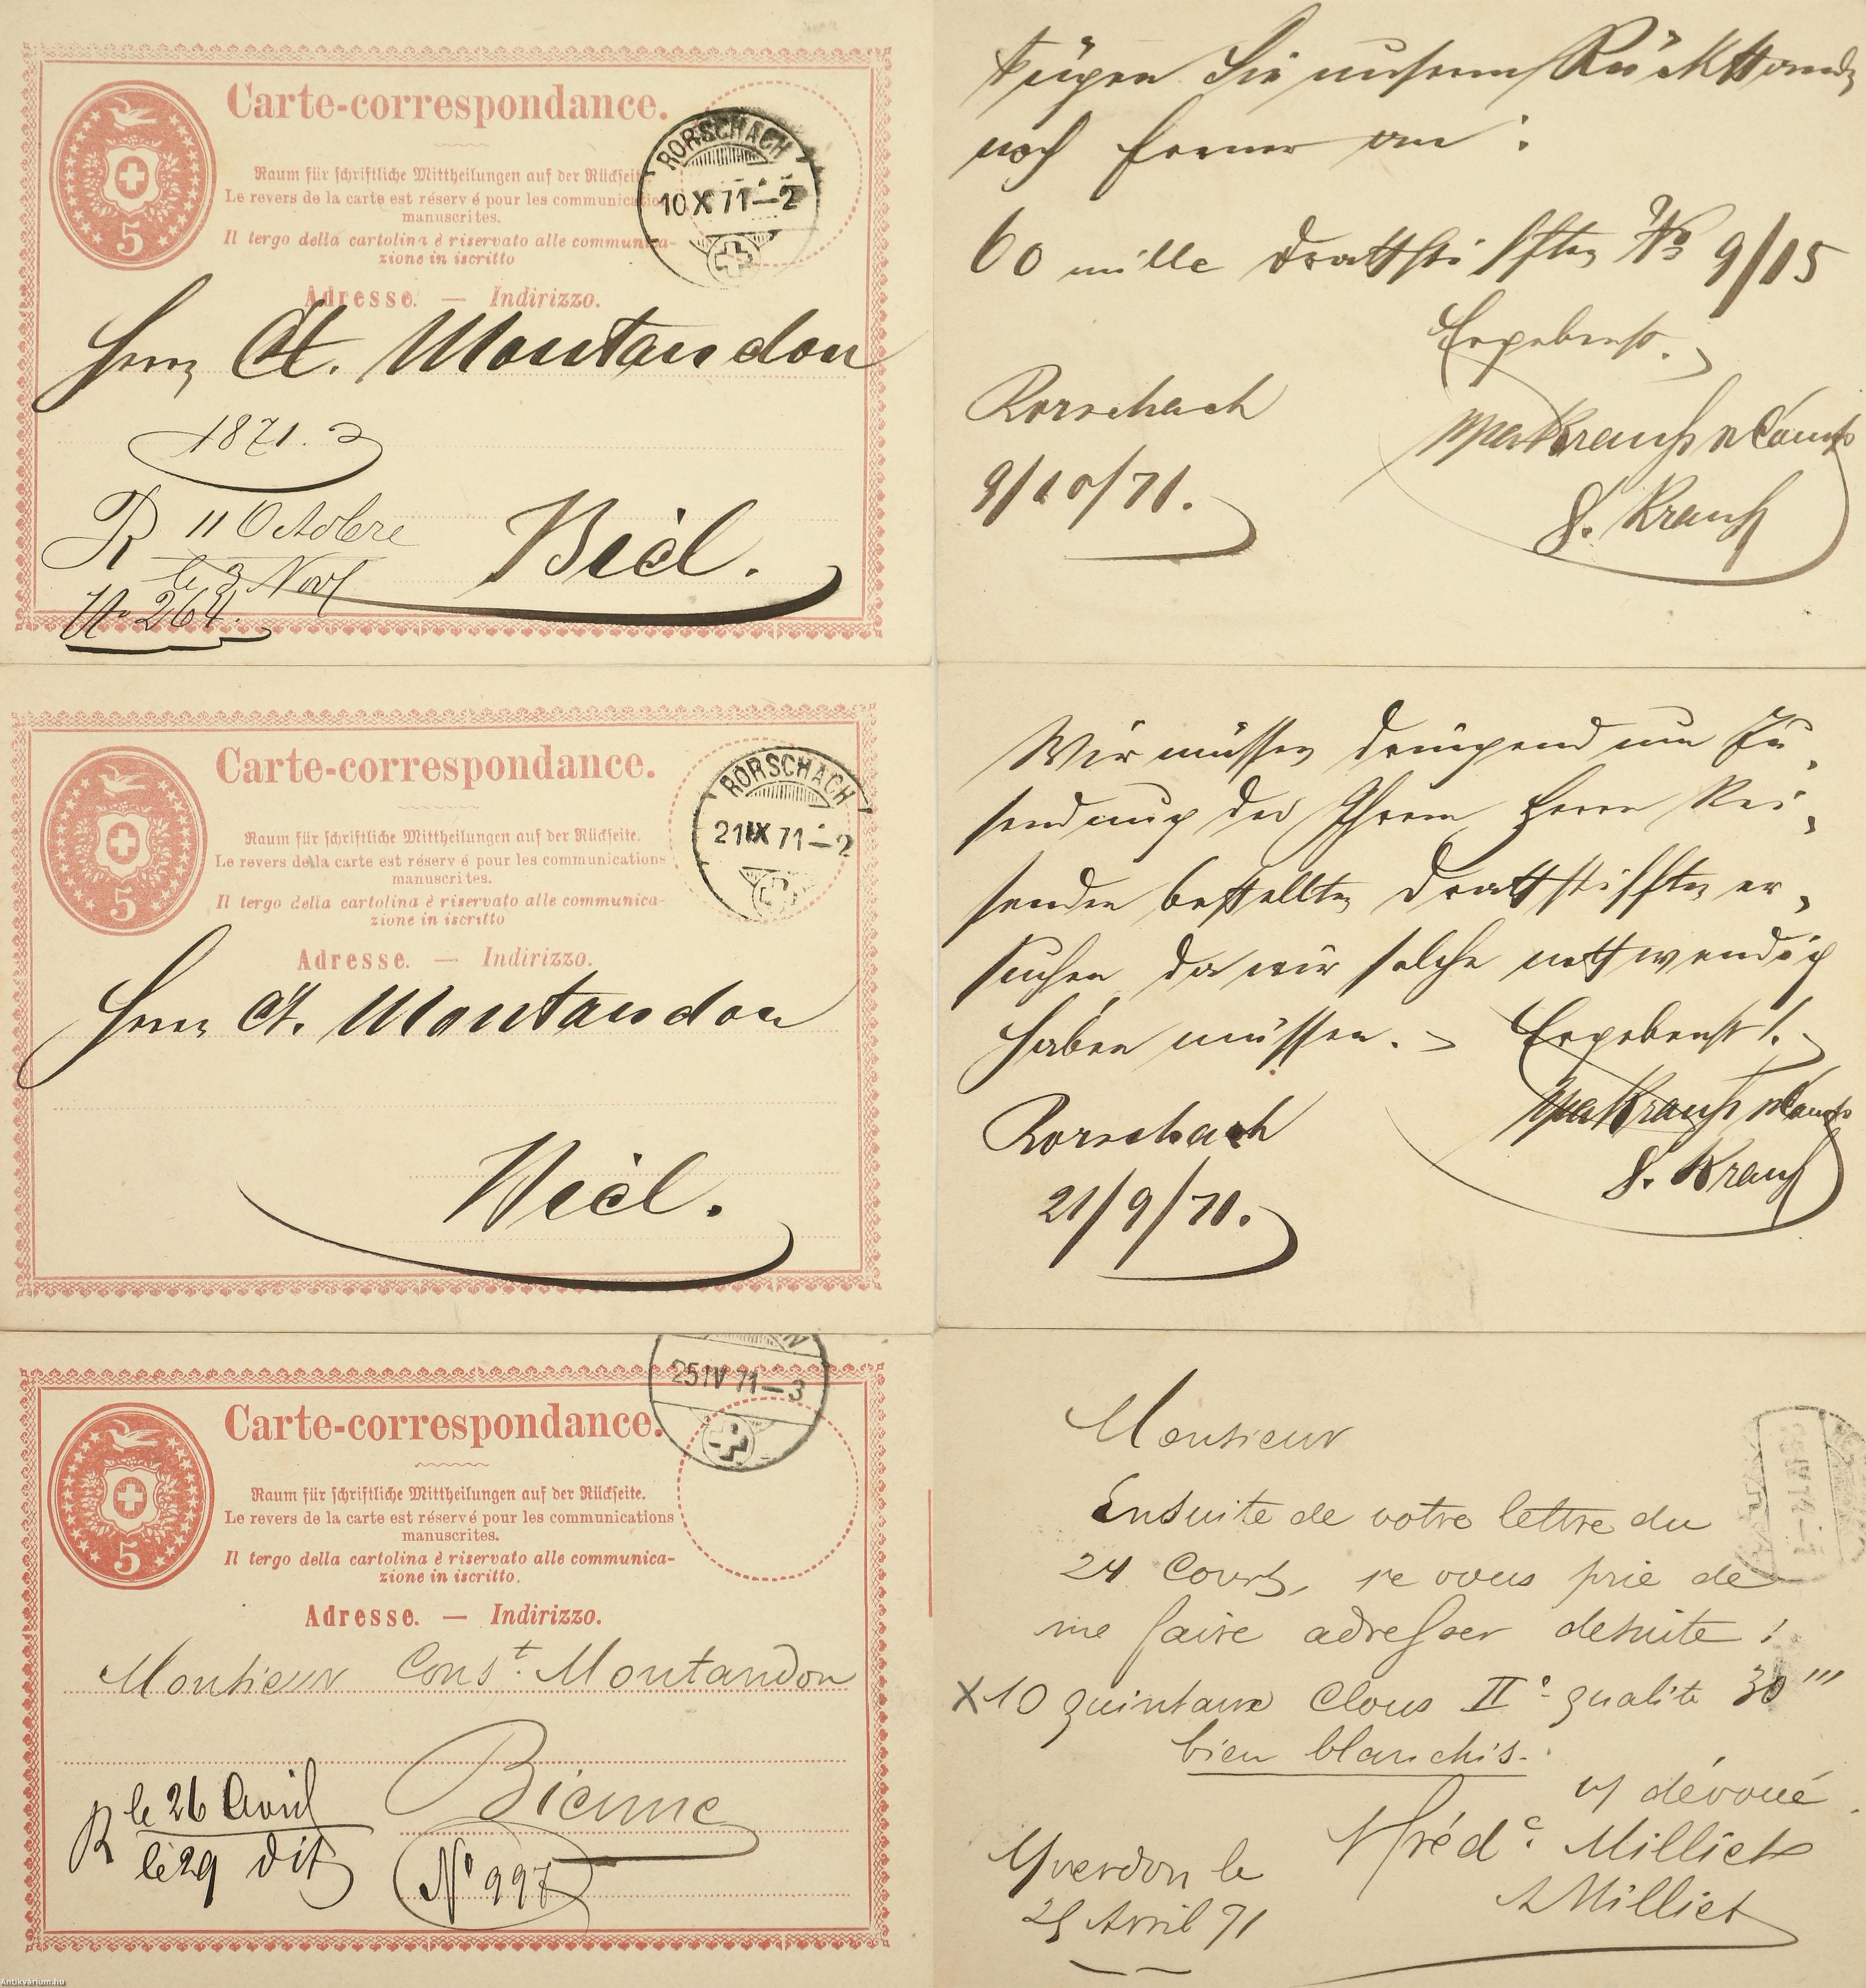 Carte-correspondance.
Raum für schriftliche Mittheilungen auf der Rückseit
Le revers de la carte est réserv é pour les communicatio
manuscrites.
Il tergo della cartolina è riservato alle communica-
zione in iscritto
Adresse. — Indirizzo.
5
RORSCHACH
10 X 71 – 2
Herrn Ct. Montandon
1871.
R 11 Octobre
le 3 Nov
No 264.
Biel.
fügen Sie unserm Rückstand
noch ferner an :
60 mille Drattstifften No 9/15
Ergebenst.
Rorschach
9/10/71.
ppa Krauß & Comp
J. Krauß
Carte-correspondance.
Raum für schriftliche Mittheilungen auf der Rückseite.
Le revers della carte est réserv é pour les communications
manuscrites.
Il tergo della cartolina è riservato alle communica-
zione in iscritto
Adresse. — Indirizzo.
5
RORSCHACH
21 IX 71 – 2
Herrn Ct. Montandon
Biel.
Wir müssen dringend um Zu,
sendung der Ihrem Herrn Rei,
senden bestellten Drattstifften er,
suchen da wir solche nottwendig
haben müssen. Ergebenst!
Rorschach
21/9/71.
ppa Krauß & Comp
J. Krauß
Carte-correspondance.
Raum für schriftliche Mittheilungen auf der Rückseite.
Le revers de la carte est réservé pour les communications
manuscrites.
Il tergo della cartolina è riservato alle communica-
zione in iscritto.
Adresse. — Indirizzo.
5
25 IV 71 – 3
Monsieur Const. Montandon
Bienne
R le 26 Avril
le 29 dit
No 997
Monsieur
Ensuite de votre lettre du
24 Court, je vous prie de
me faire adresser desuite :
X 10 quintaux Clous IIe qualité 30'''
bien blanchis.
v/ dévoué
Fréd.c Milliet
Yverdon le
25 Avril 71
A Milliet
Antikvarium.hu